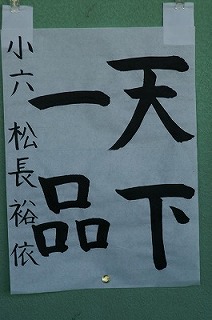 天下
一品
小六松長裕依